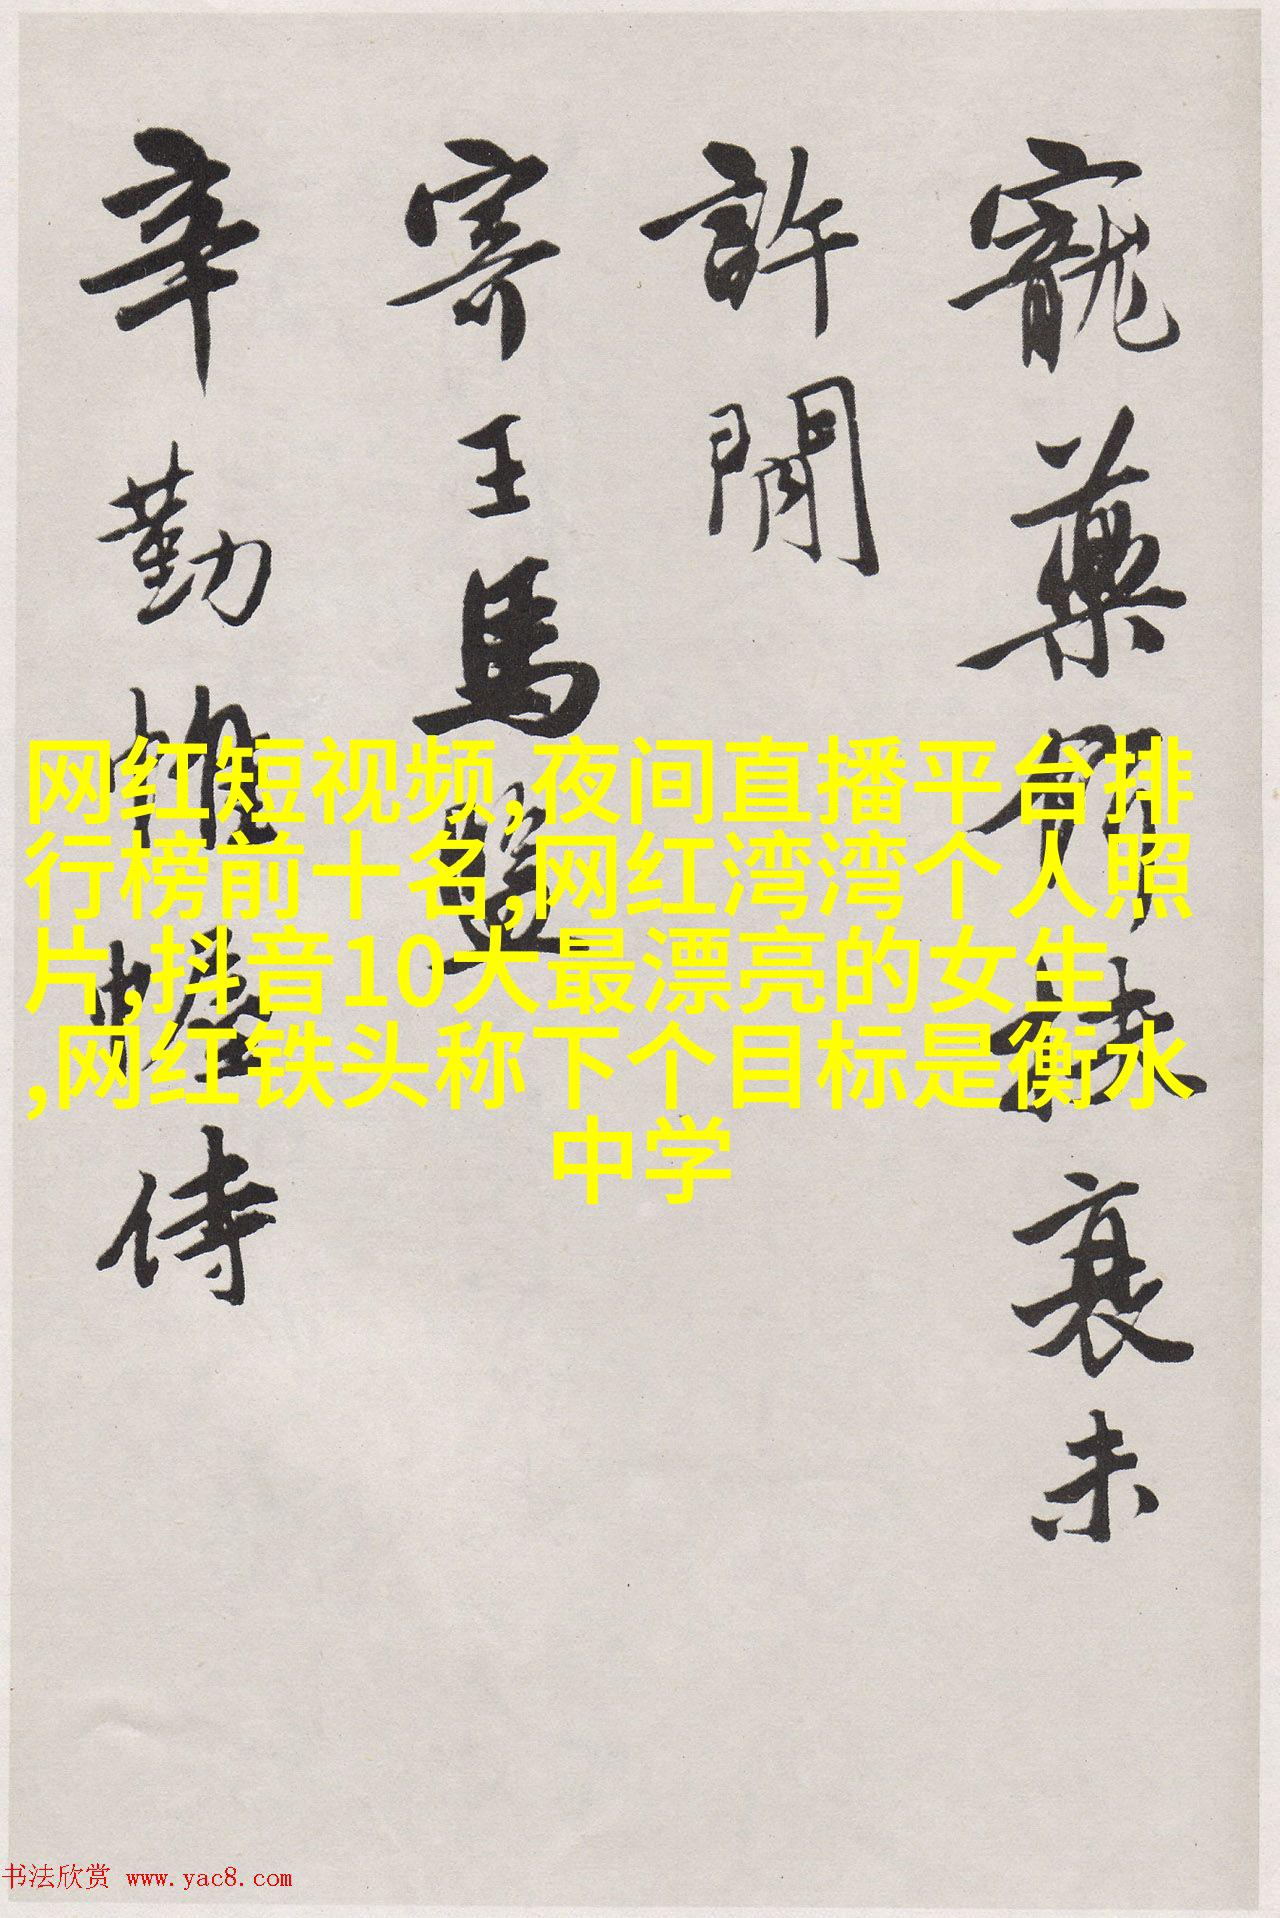 寵藥衰未
許閒
寄王馬
辛勤帷幄侍
网红短视频,夜间直播平台排
行榜前十名,网红湾湾个人照
片,抖音10大最漂亮的女生
,网红铁头称下个目标是衡水
中学
书法欣赏 www.yac8.com